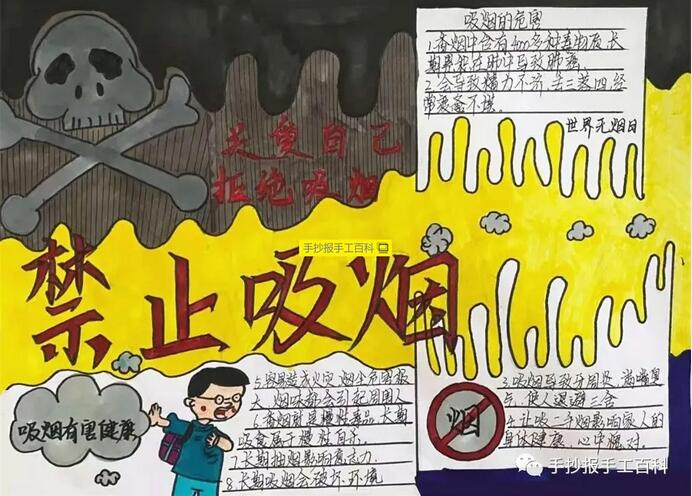 吸烟的危害
1.香烟中含有400多种毒物质长
期累积在肺中导致肺癌
2.会导致精力不济,丢三落四,经
常疲惫不堪.
世界无烟日
关爱自己
拒绝吸烟
手抄报手工百科
禁止吸烟
吸烟有害健康
5.容易造成火灾,烟尘危害极
大,烟味都会引起周围人
6.香烟就是慢性毒品,长期
吸食属于慢性自杀.
7.长期抽烟影响意志力.
8.长期吸烟会破坏环境
烟
3.吸烟导致牙周炎,满嘴臭
,使人退避三舍
4.让吸二手烟影响家人的
身体健康,心中愧对.
手抄报手工百科